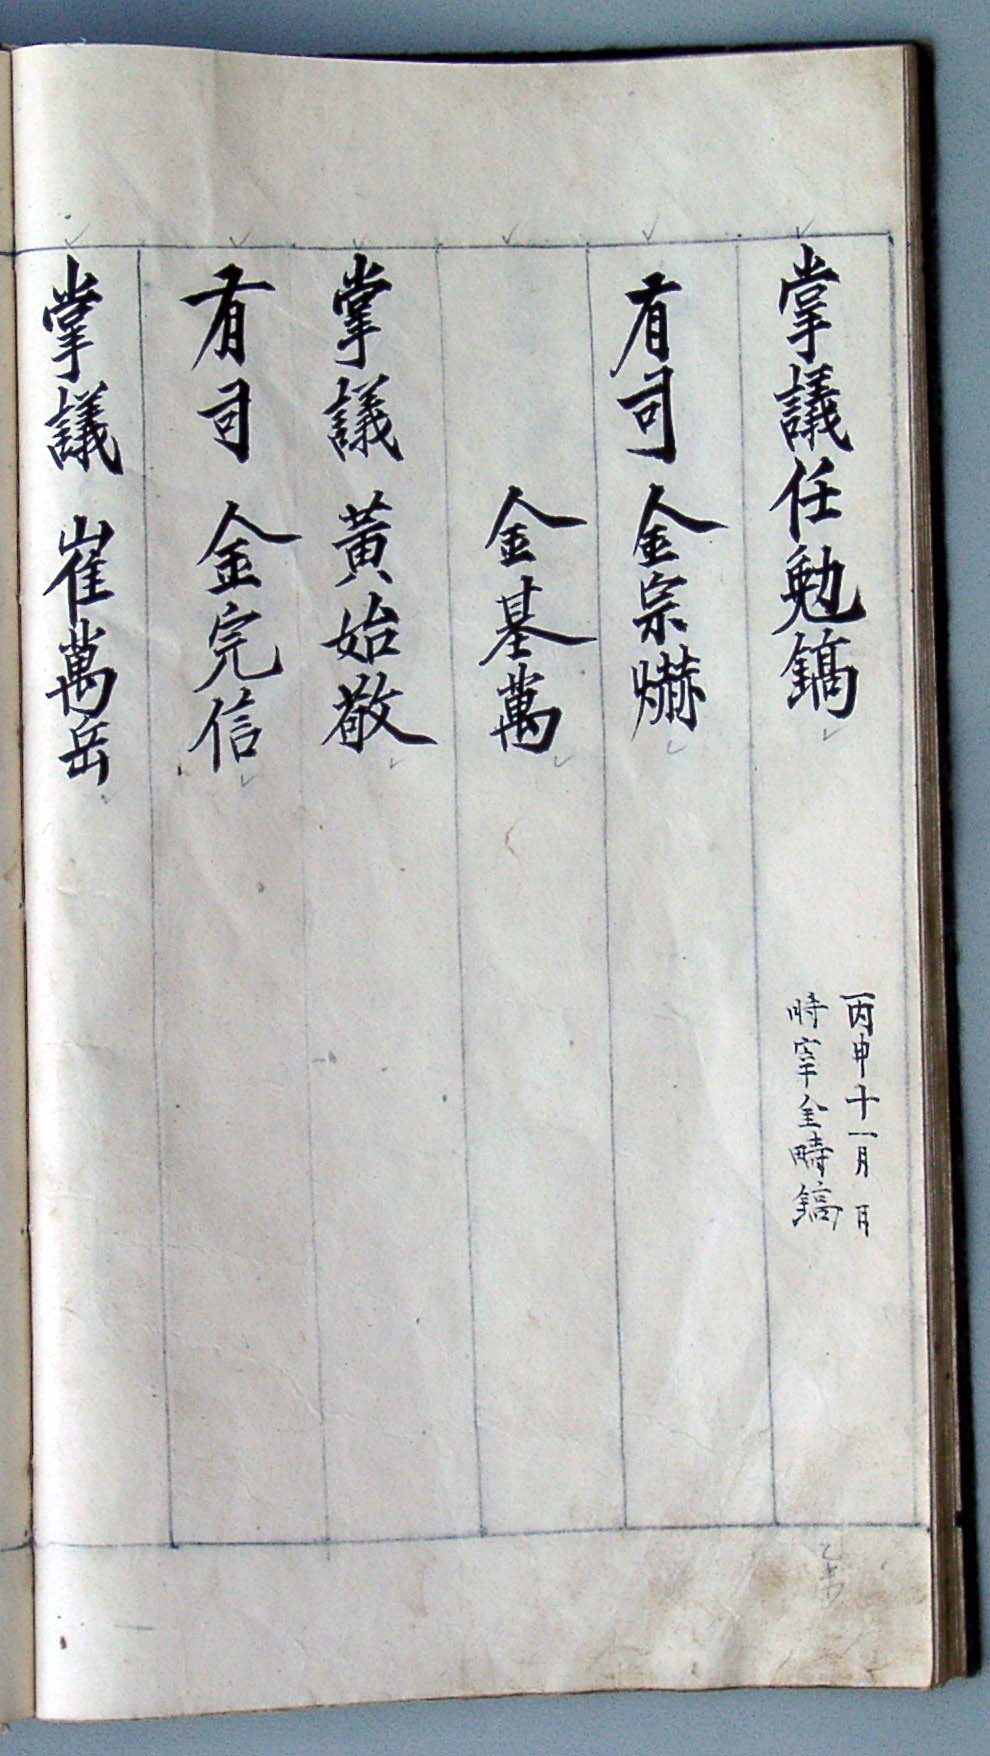 掌議任勉鎬
丙申十一月 日
時宰金疇鎬
有司金宗爀
金基萬
掌議黃始敬
有司金完信
掌議崔萬岳